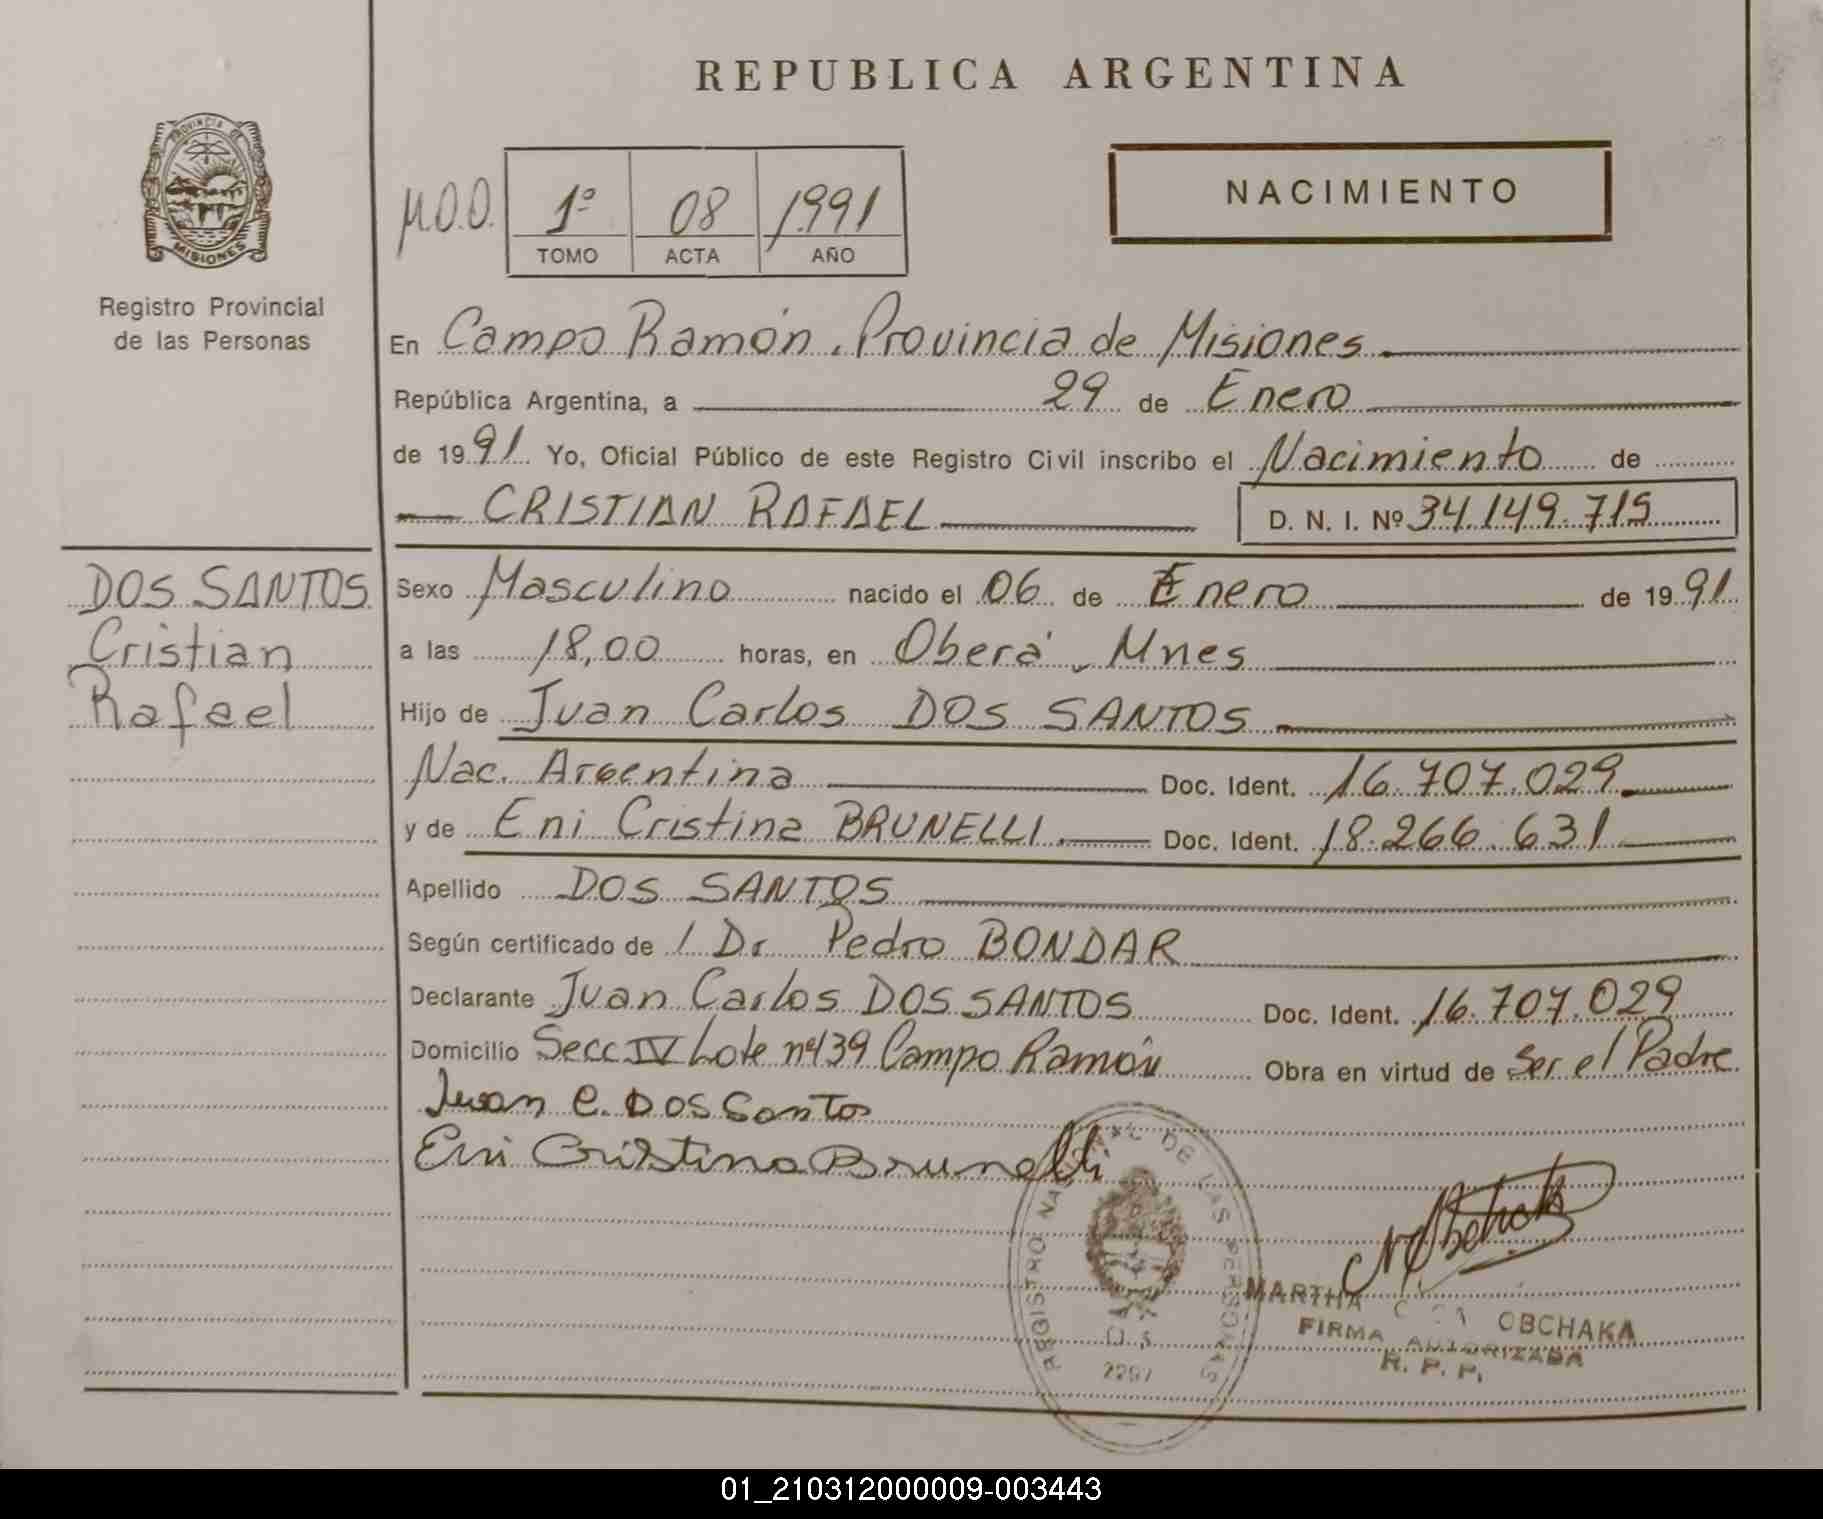 REPUBLICA ARGENTINA
PROVINCIA DE
MISIONES
Registro Provincial
de las Personas
M.O.O.
1º 08 1991
TOMO ACTA AÑO
NACIMIENTO
En Campo Ramón. Provincia de Misiones
República Argentina, a 29 de Enero
de 1991 Yo, Oficial Público de este Registro Civil inscribo el Nacimiento de
CRISTIAN RAFAEL D. N. I. Nº 34.149.715
DOS SANTOS
Cristian
Rafael
Sexo Masculino nacido el 06 de Enero de 1991
a las 18,00 horas, en Oberá, Mnes
Hijo de Juan Carlos DOS SANTOS
Nac. Argentina Doc. Ident. 16.707.029
y de Eni Cristina BRUNELLI Doc. Ident. 18.266.631
Apellido DOS SANTOS
Según certificado de / Dr Pedro BONDAR
Declarante Juan Carlos DOS SANTOS Doc. Ident. 16.707.029
Domicilio Secc IV Lote nº139 Campo Ramón Obra en virtud de Ser el Padre
Juan C. DOS Santos
Eni Cristina Brunelli
REGISTRO NACIONAL DE LAS PERSONAS
2297
MARTHA OBCHAKA
FIRMA AUTORIZADA
R. P. P.
01_210312000009-003443